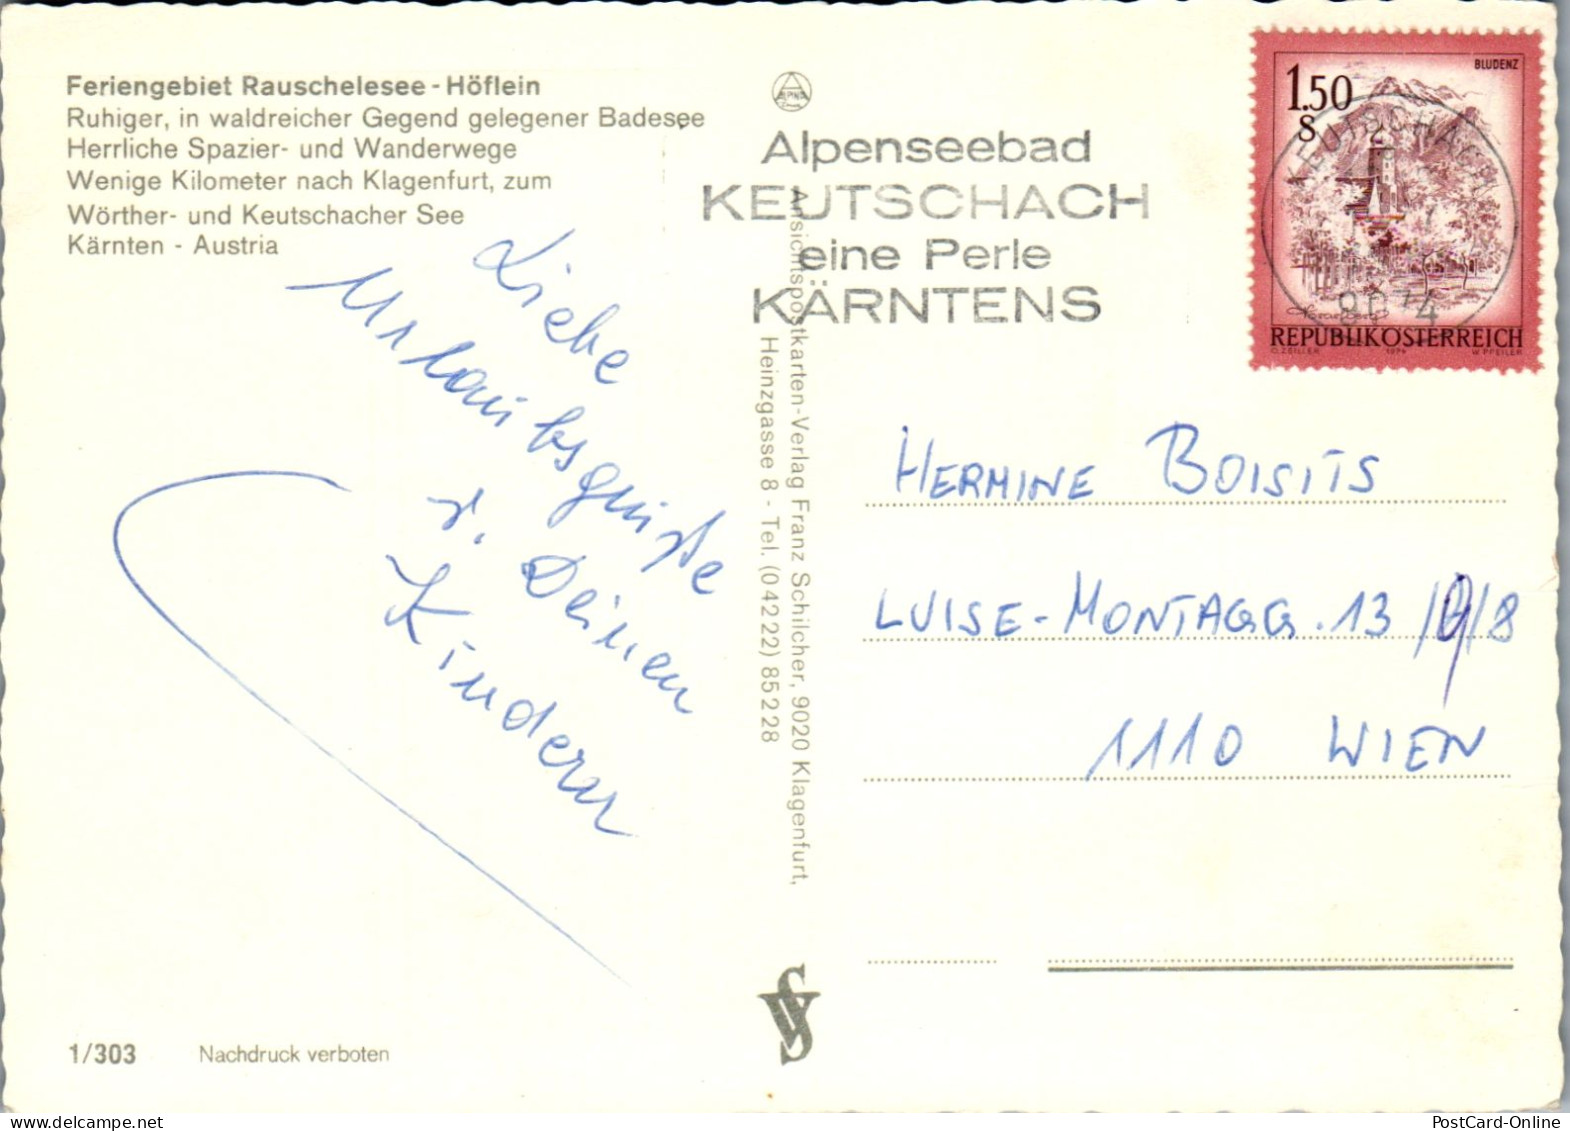 Feriengebiet Rauschelesee - Höflein
Ruhiger, in waldreicher Gegend gelegener Badesee
Herrliche Spazier- und Wanderwege
Wenige Kilometer nach Klagenfurt, zum
Wörther- und Keutschacher See
Kärnten - Austria
Liebe
Urlaubsgrüße
v. Deinen
Kindern
1/303 Nachdruck verboten
ALPINA
Alpenseebad
KEUTSCHACH
eine Perle
KÄRNTENS
Ansichtspostkarten-Verlag Franz Schilcher, 9020 Klagenfurt,
Heinzgasse 8 - Tel. (04222) 85228
SV
BLUDENZ
1.50
S
KEUTSCHACH
9074
Vorarlberg
REPUBLIK ÖSTERREICH
O. ZEILLER 1974 W. PFEILER
HERMINE BOISITS
LUISE-MONTAGG. 13 / /8
1110 WIEN
PostCard-Online